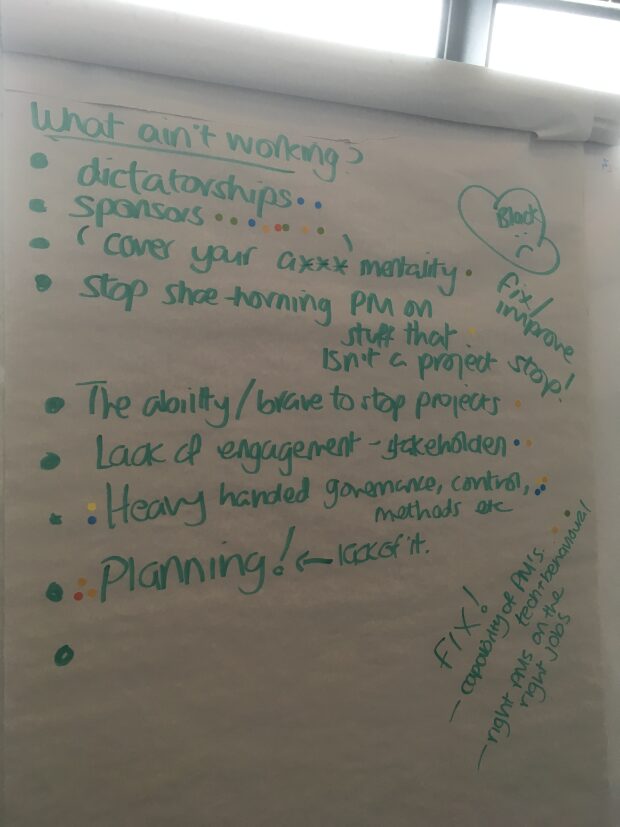 What ain't working?
dictatorships
sponsors
(cover your a***) mentality
Stop shoe-horning PM on
stuff that
Isn't a project
The ability/brave to stop projects
Lack of engagement - stakeholders
Heavy handed governance, control,
methods etc
Planning! ← lack of it.
Black
fix/
improve
stop!
FIX!
- capability of PM's
tech+behavioural
- right PMs on the
right jobs